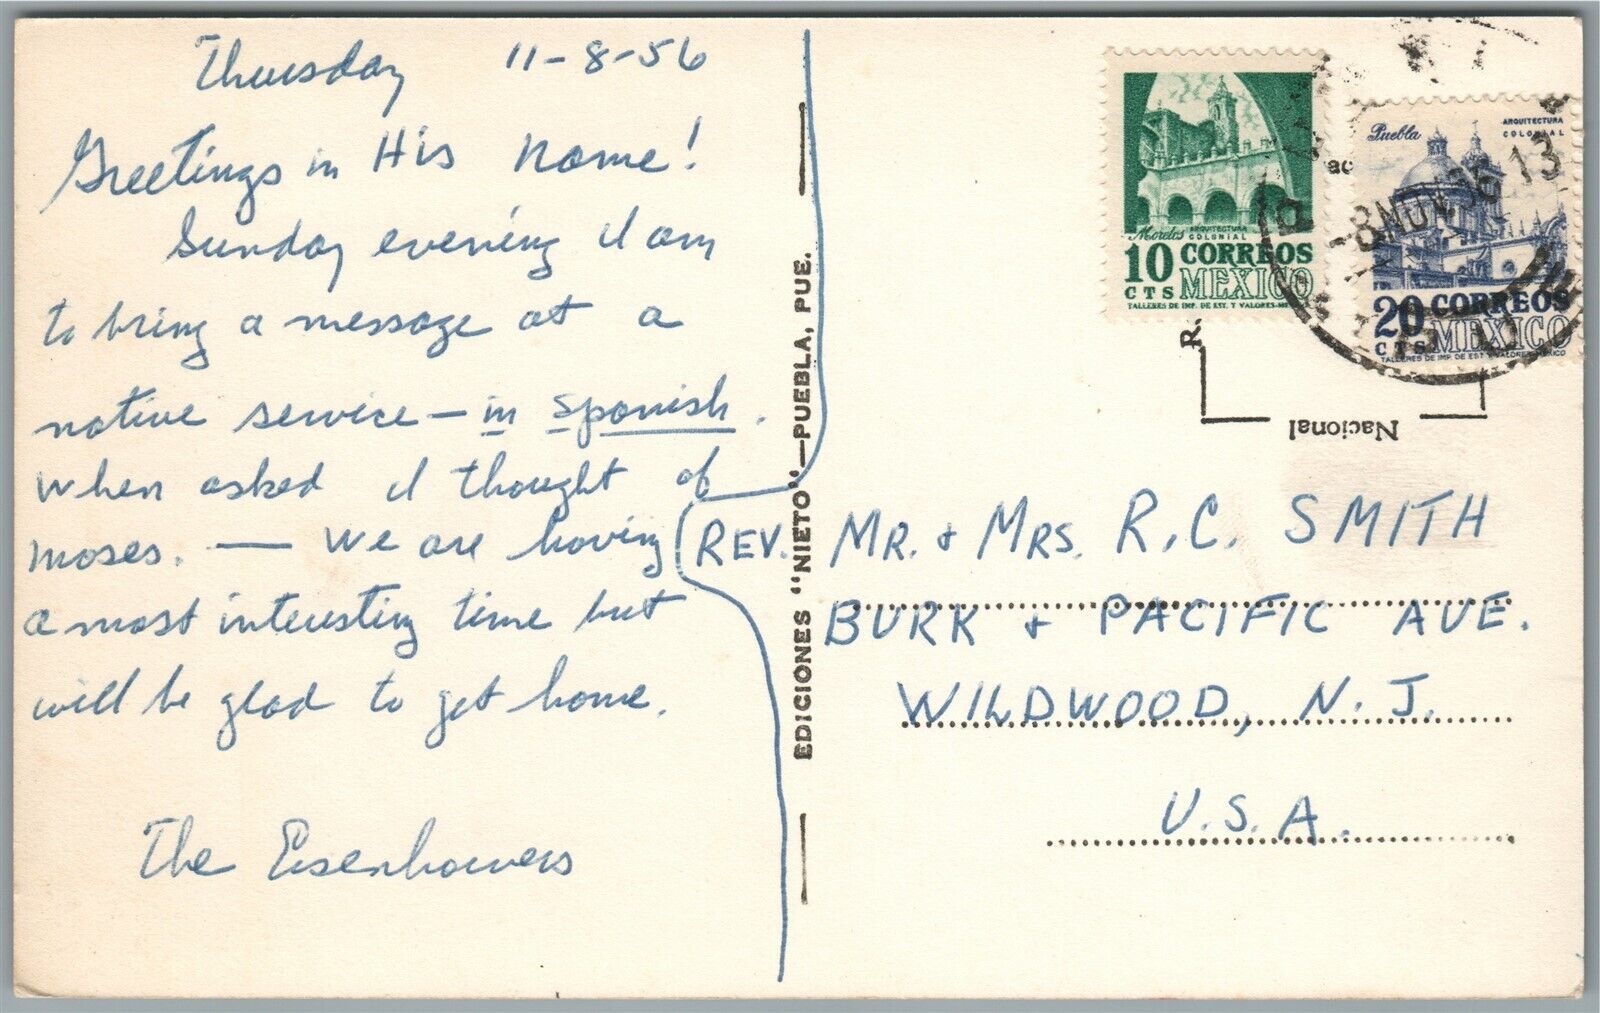 Thursday 11-8-56
Greetings in His name!
Sunday evening I am
to bring a message at a
native service — in Spanish.
When asked I thought of
Moses. — We are having
a most interesting time but
will be glad to get home.
The Eisenhowers
EDICIONES "NIETO"—PUEBLA, PUE.
Morelos ARQUITECTURA COLONIAL
10 CORREOS
CTS MEXICO
TALLERES DE IMP. DE EST. Y VALORES-MEXICO
Puebla ARQUITECTURA COLONIAL
20 CORREOS
CTS MEXICO
TALLERES DE IMP. DE EST. Y VALORES-MEXICO
-8 NOV. 56 13
R.
Nacional
REV. MR. & MRS. R. C. SMITH
BURK & PACIFIC AVE.
WILDWOOD, N. J.
U. S. A.